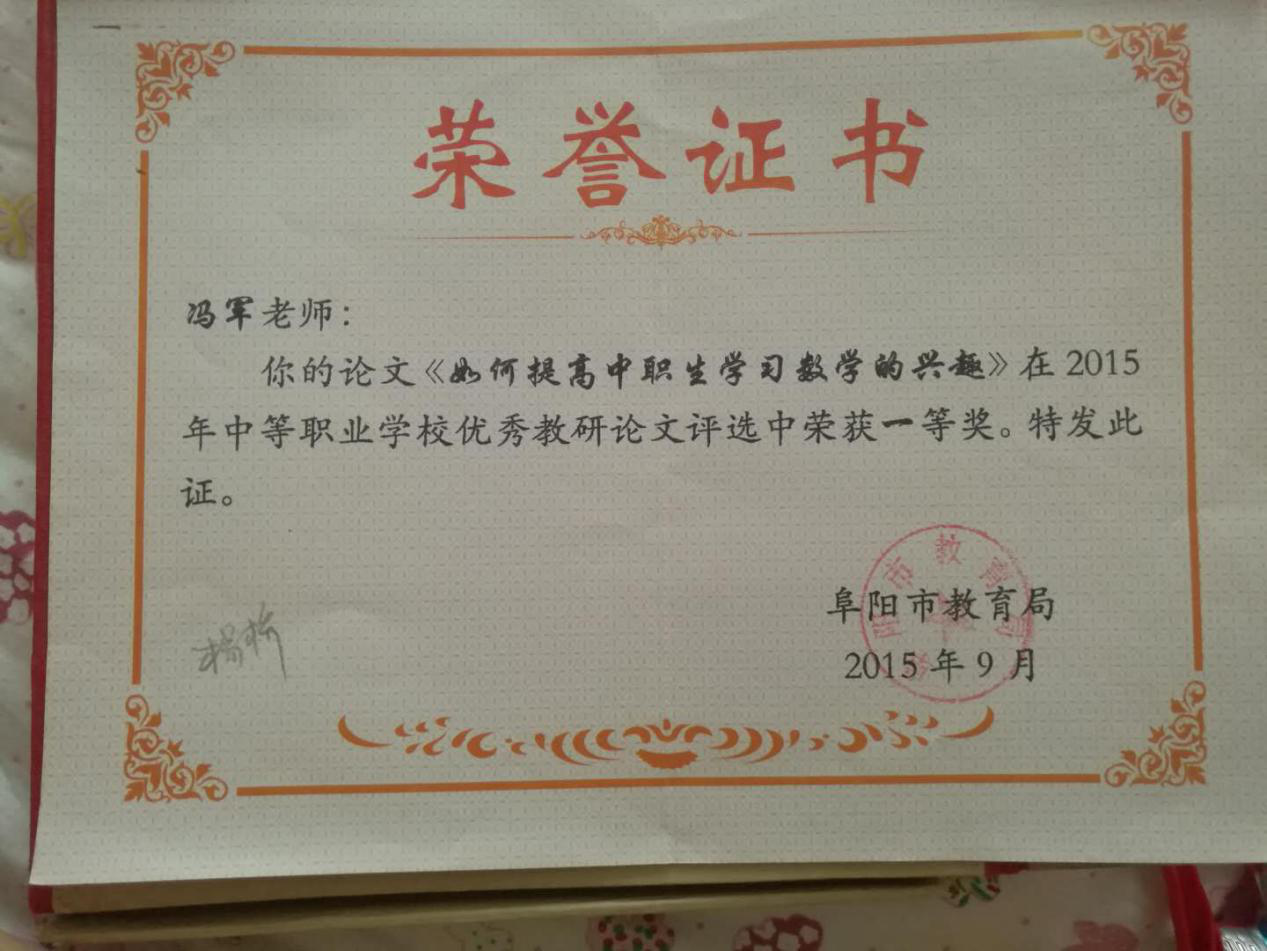 荣誉证书
冯军老师：
你的论文《如何提高中职生学习数学的兴趣》在2015
年中等职业学校优秀教研论文评选中荣获一等奖。特发此
证。
阜阳市教育局
2015年9月
杨桥